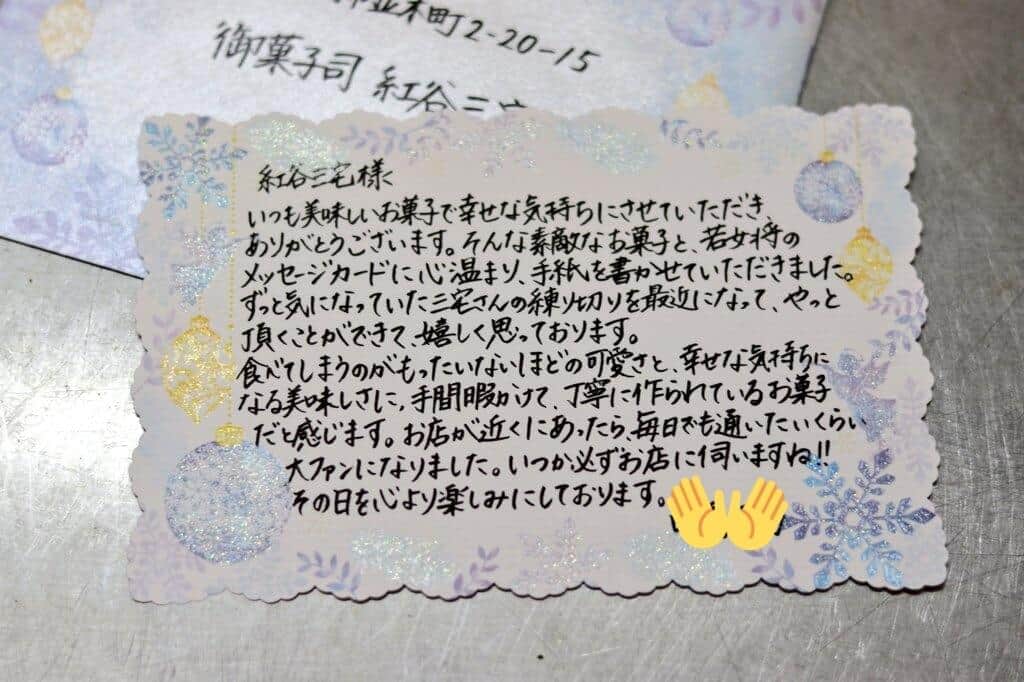 並木町2-20-15
御菓子司 紅谷三宅
紅谷三宅様
いつも美味しいお菓子で幸せな気持ちにさせていただき、
ありがとうございます。そんな素敵なお菓子と、若女将の
メッセージカードに心温まり、手紙を書かせていただきました。
ずっと気になっていた三宅さんの練り切りを最近になって、やっと
頂くことができて、嬉しく思っております。
食べてしまうのがもったいないほどの可愛さと、幸せな気持ちに
なる美味しさに、手間暇かけて、丁寧に作られているお菓子
だと感じます。お店が近くにあったら、毎日でも通いたいくらい
大ファンになりました。いつか必ずお店に伺いますね!!
その日を心より楽しみにしております。